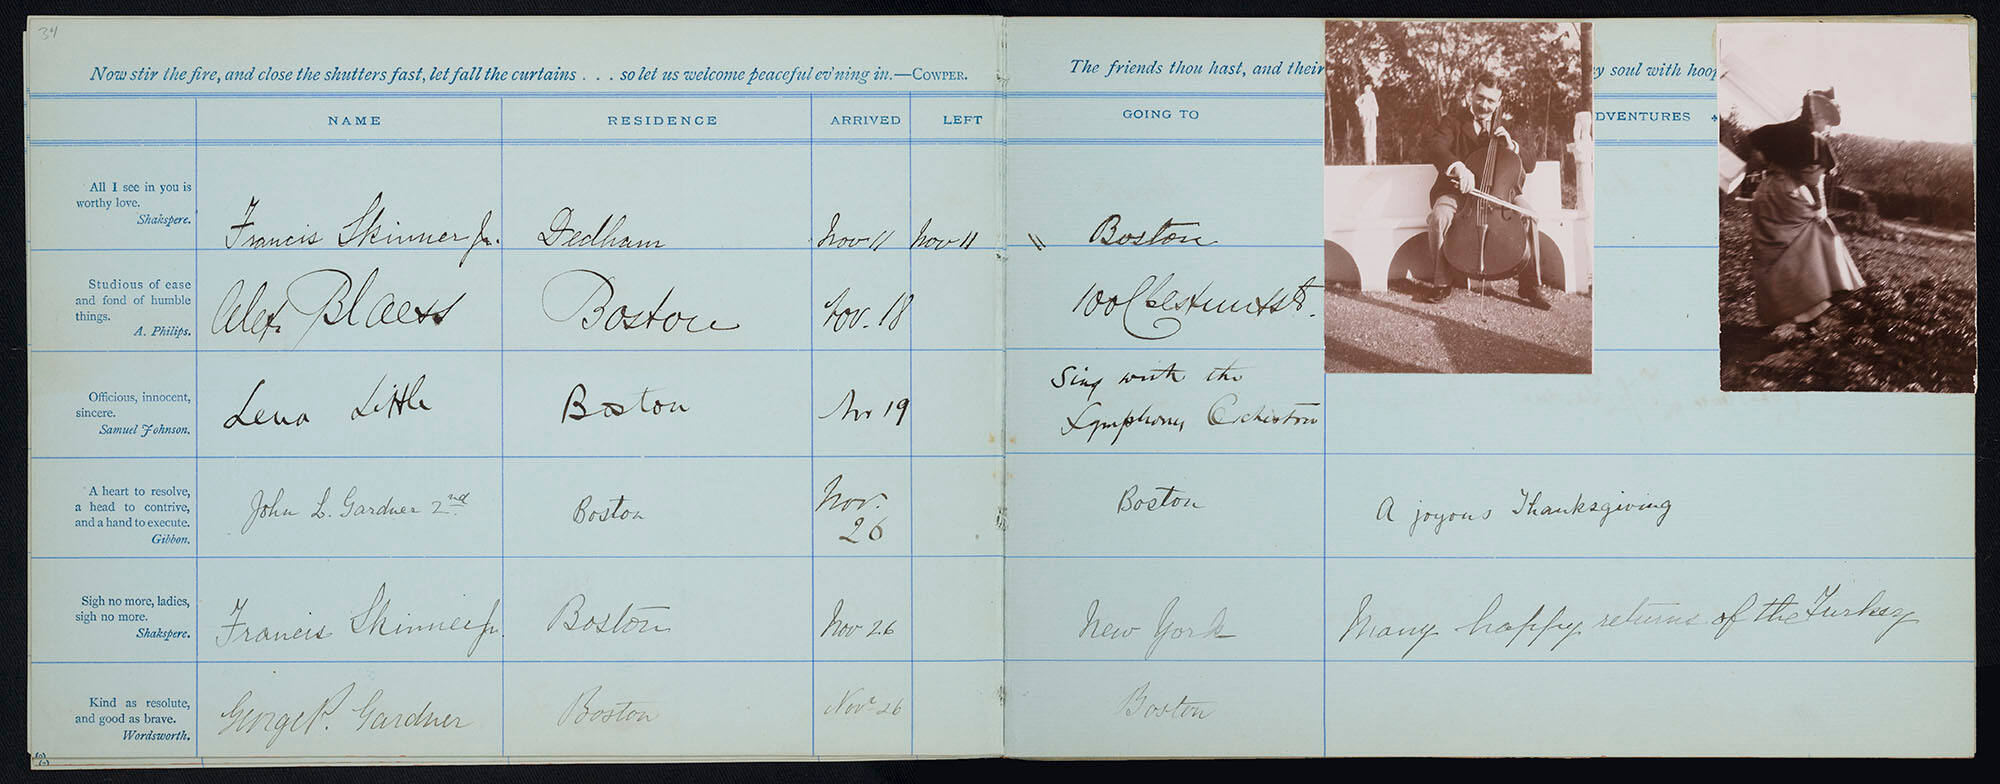 34
Now stir the fire, and close the shutters fast, let fall the curtains . . . so let us welcome peaceful ev'ning in.—COWPER.
The friends thou hast, and their
y soul with hoop
NAME RESIDENCE ARRIVED LEFT GOING TO DVENTURES
All I see in you is
worthy love.
Shakspere.
Francis Skinner Jr. Dedham Nov 11 Nov 11 " Boston
Studious of ease
and fond of humble
things.
A. Philips.
Alex. Blaess Boston Nov. 18 100 Chestnut St.
Officious, innocent,
sincere.
Samuel Johnson.
Lena Little Boston Nov 19 Sing with the
Symphony Orchestra
A heart to resolve,
a head to contrive,
and a hand to execute.
Gibbon.
John L. Gardner 2nd Boston Nov.
26 Boston A joyous Thanksgiving
Sigh no more, ladies,
sigh no more.
Shakspere.
Francis Skinner Jr. Boston Nov 26 New York Many happy returns of the Turkey
Kind as resolute,
and good as brave.
Wordsworth.
George P. Gardner Boston Novr 26 Boston